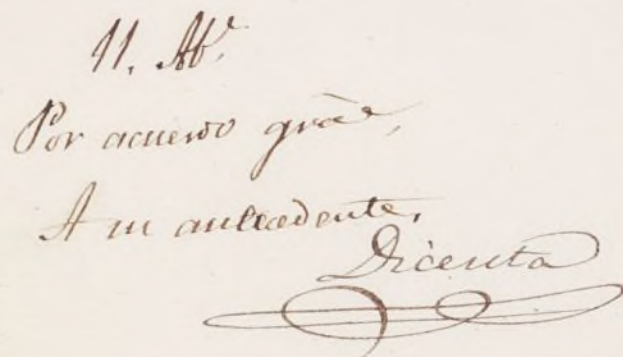 11. Ab.ˡ
Por acuerdo grãl,
A su antecedente,
Dicenta